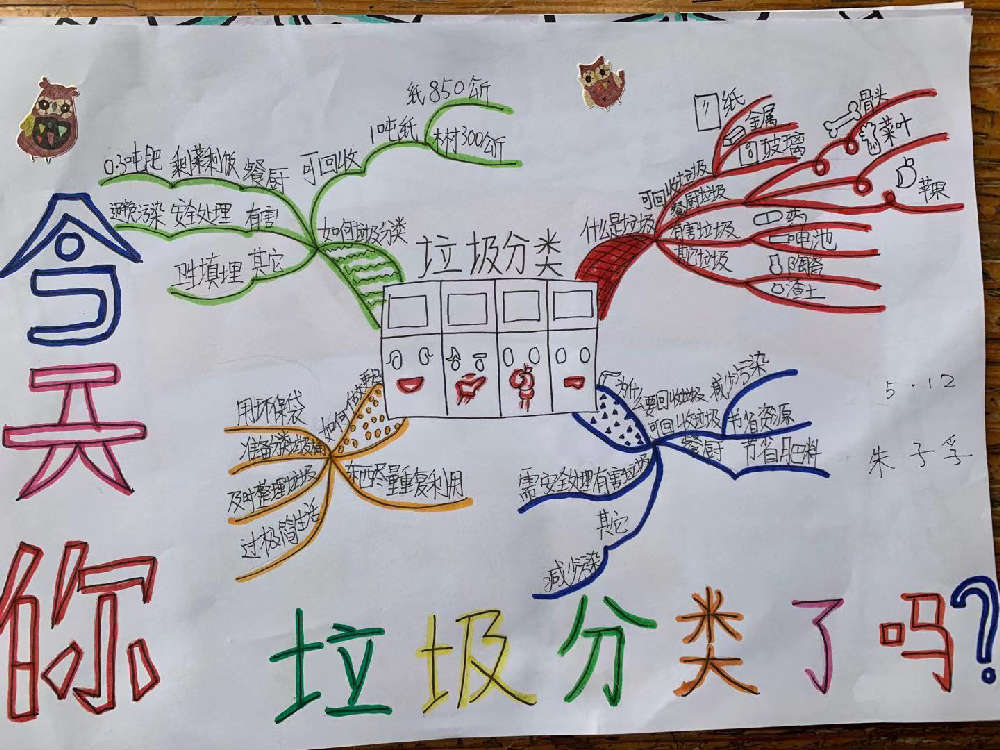 今天
你
垃圾分类了吗?
垃圾分类
什么是垃圾
可回收垃圾
纸
金属
玻璃
餐厨垃圾
骨头
菜叶
苹果
有害垃圾
电池
其它垃圾
陶瓷
渣土
如何垃圾分类
可回收
1吨纸
纸850公斤
木材300公斤
餐厨
剩菜剩饭
0.3吨肥
有害
安全处理
避免污染
其它
卫生填埋
用环保袋
及时整理垃圾
过极简生活
东西尽量重复利用
要回收垃圾
减少污染
可回收垃圾
节省资源
餐厨
节省肥料
有害垃圾
需安全处理
其它
减少污染
5.12
朱子孚